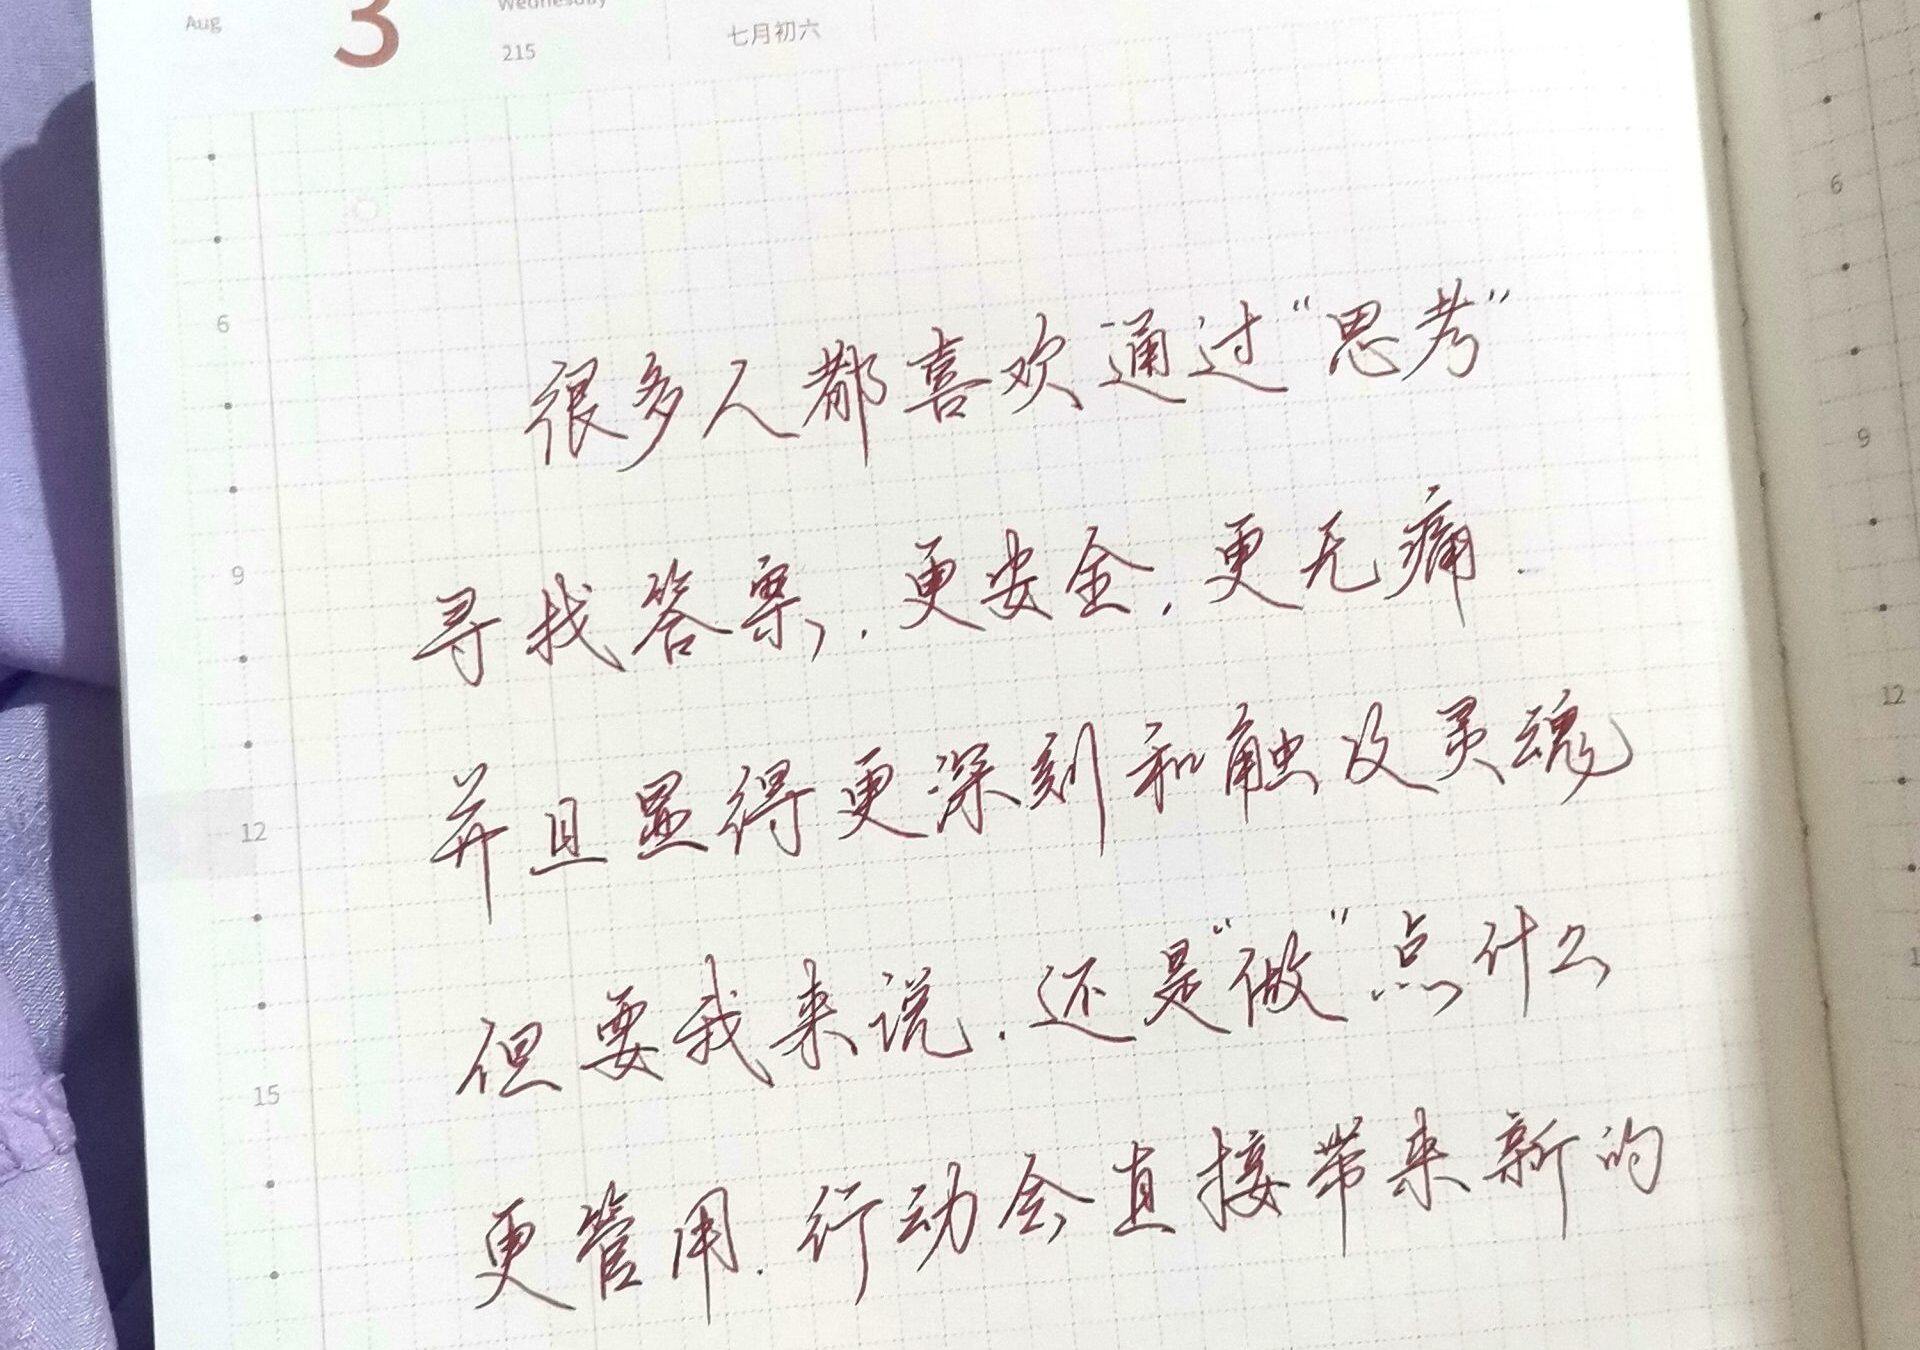 Aug 3 Wednesday
215 七月初六
6
很多人都喜欢通过“思考”
6
寻找答案,.更安全.更无痛.
9
9
并且显得更深刻和触及灵魂
12
12
但要我来说.还是“做”点什么
15
更管用.行动会直接带来新的